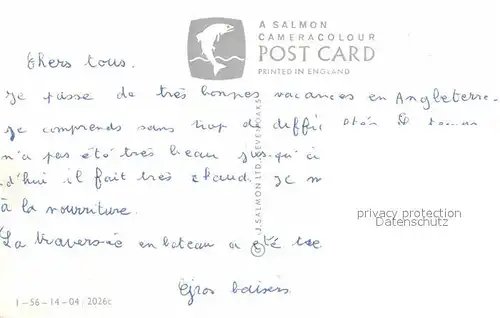 A SALMON
CAMERACOLOUR
POST CARD
PRINTED IN ENGLAND
Chers tous.
Je passe de très bonnes vacances en Angleterre.
Je comprends sans trop de diffic ultés le temps
n'a pas été très beau jusqu'à
d'hui il fait très chaud. Je m
à la nourriture.
La traversée en bateau a été
Gros baisers
© J. SALMON LTD., SEVENOAKS
privacy protection
Datenschutz
1-56-14-04/2026c